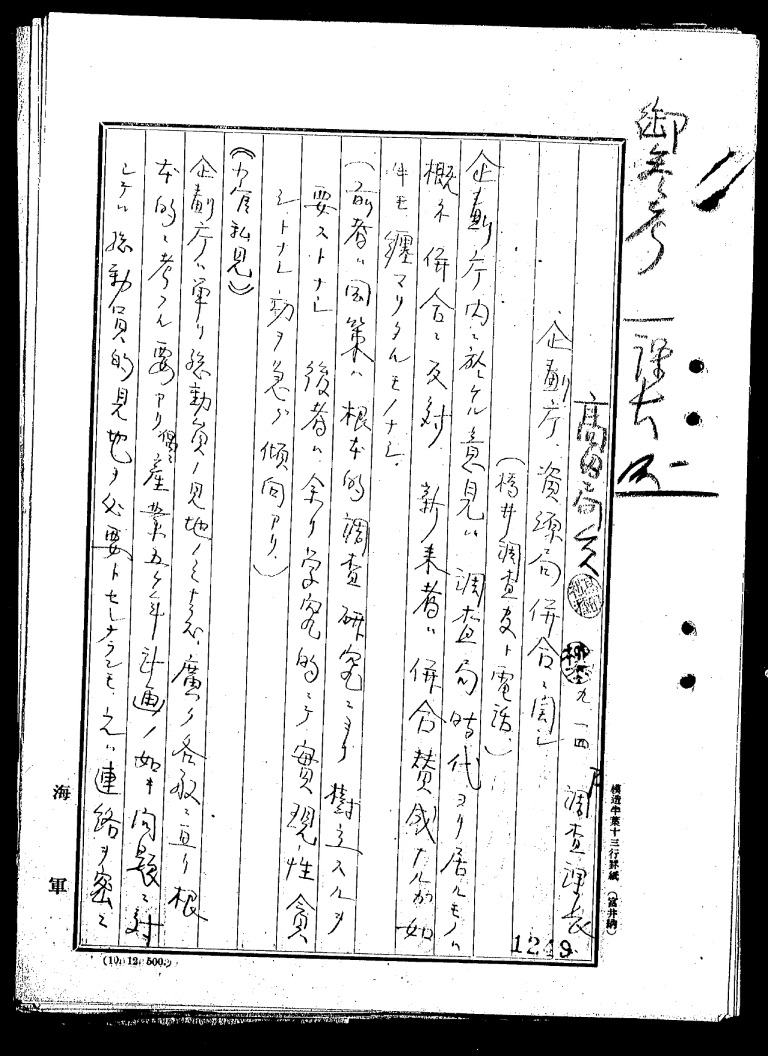 御参考
一課長
高田局員
九一四 調査課長
企劃庁、資源局併合ニ関シ
(橋井調査官ト電話)
企劃庁内ニ於ケル意見ハ調査局時代ヨリ居ルモノハ
概ネ併合ニ反対 新ノ来者ハ併合賛成ナルガ如
キモ纏マリタルモノナシ.
(前者ハ国策ハ根本的調査研究ニヨリ樹立スルヲ
要ストナシ 後者ハ余リ学究的ニテ実現性貧
シトナシ功ヲ急グ傾向アリ.)
《小官私見》
企劃庁ハ単リ総動員ノ見地ノミナラズ広ク各般ニ亘リ根
本的ニ考フル要アリ 産業五ヶ年計画ノ如キ問題ニ対
シテハ総動員的見地ヲ必要トセンナランモ之ハ連絡ヲ密ニ
海軍
模造半葉十三行罫紙 (富井納)
1249
(10. 12. 500.)